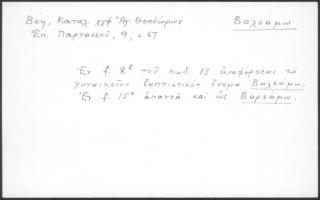 Βέη, Καταλ. χγφ Ἁγ. Θεοδώρων Βαλσάμω
Ἐπ. Παρνασσοῦ, 9, σ 67
Ἐν f. 8β τοῦ κωδ. 13 ἀναφέρεται τὸ
γυναικεῖον βαπτιστικὸν ὄνομα Βαλσάμω.
Ἐν f. 15α ἀπαντᾷ καὶ ὡς Βαρσάμω.